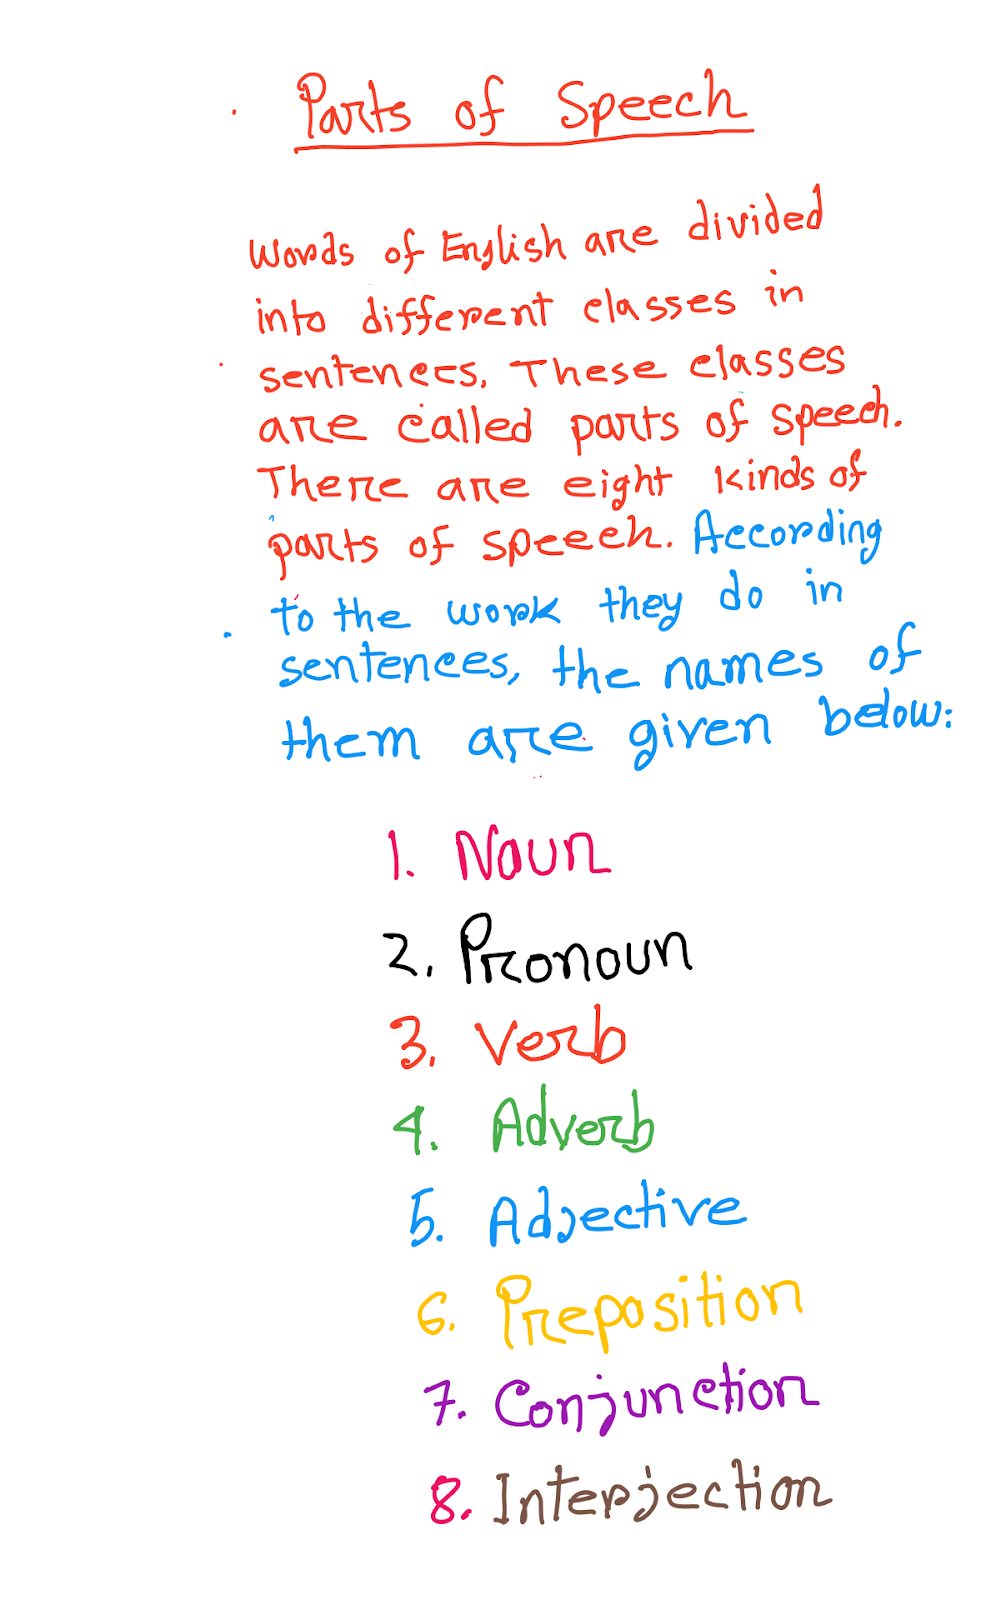 Parts of Speech
Words of English are divided
into different classes in
sentences. These classes
are called parts of speech.
There are eight kinds of
parts of speech. According
to the work they do in
sentences, the names of
them are given below:
1. Noun
2. Pronoun
3. Verb
4. Adverb
5. Adjective
6. Preposition
7. Conjunction
8. Interjection